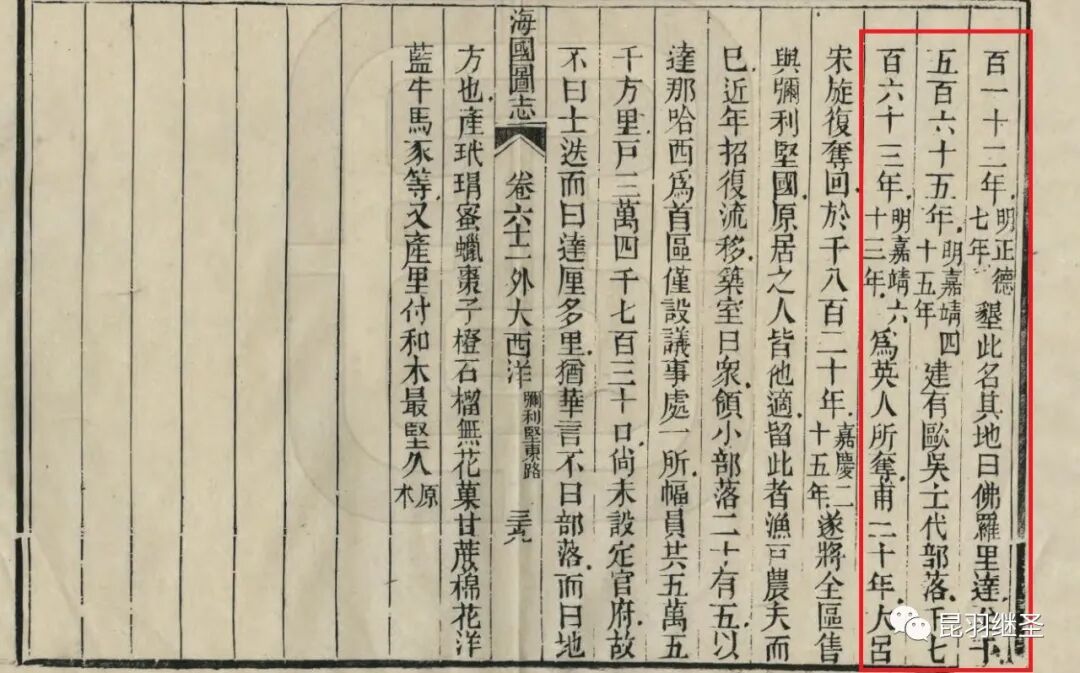 百一十二年明正德七年墾此名其地曰佛羅里達
五百六十五年明嘉靖四十五年建有歐吳士代部落千七
百六十三年明嘉靖六十三年爲英人所奪甫二十年大呂
宋旋復奪回於千八百二十年嘉慶二十五年遂將全區售
與彌利堅國原居之人皆他適留此者漁戶農夫而
已近年招復流移築室日衆領小部落二十有五以
達那哈西爲首區僅設議事處一所幅員共五萬五
千方里戶三萬四千七百三十口尙未設定官府故
不曰士迭而曰達厘多里猶華言不曰部落而曰地
海國圖志 卷六十一外大西洋 彌利堅東路 三九
方也產玳瑁蜜蠟棗子橙石榴無花菓甘蔗棉花洋
藍牛馬豕等又產里付和木最堅久原本
昆羽继圣